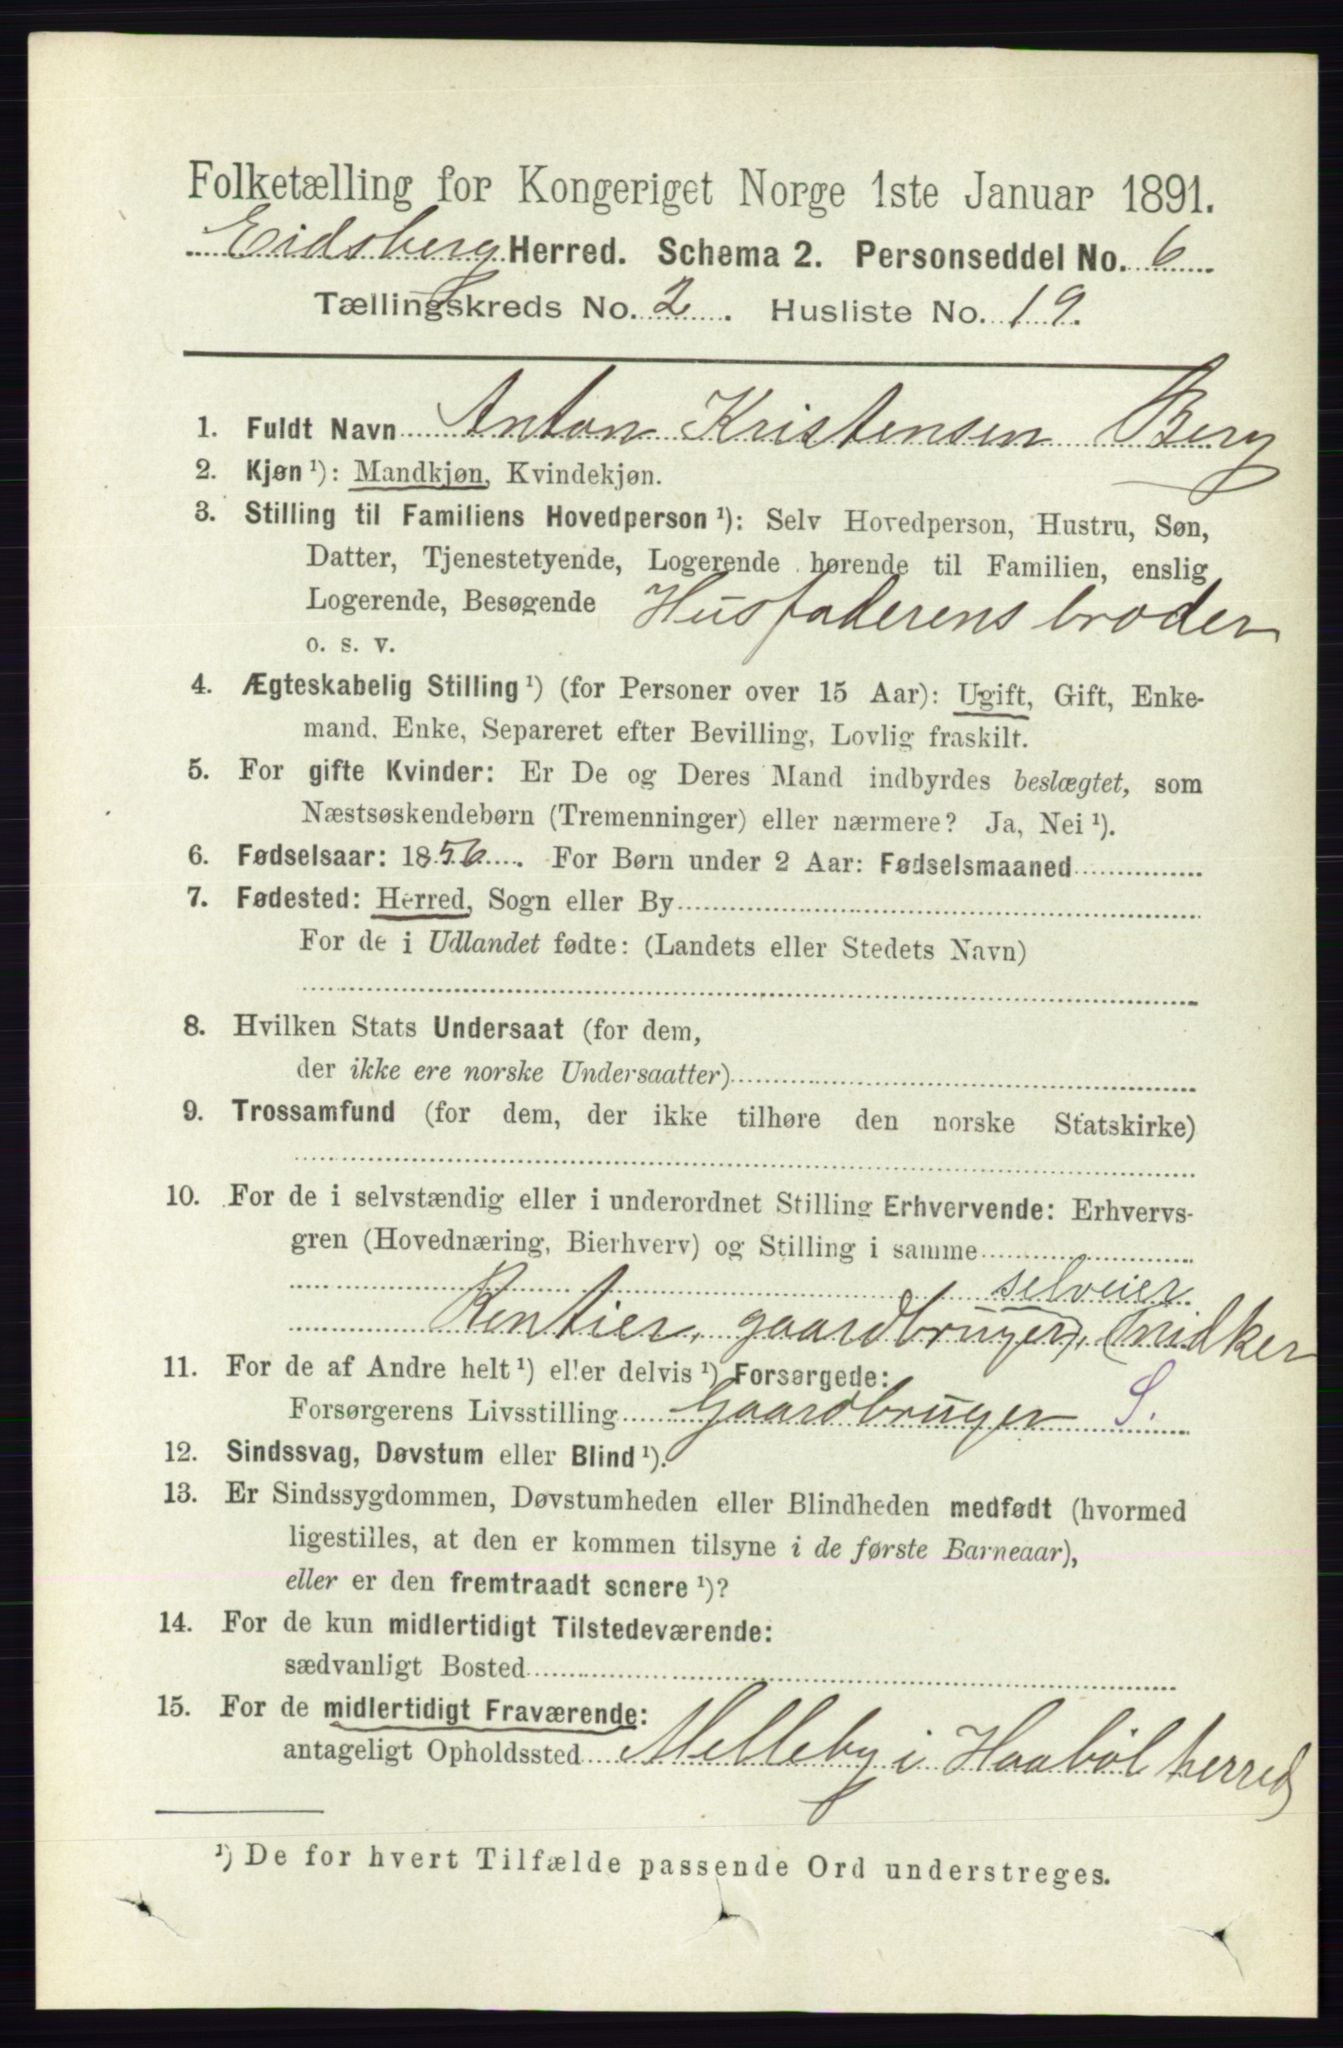 Folketælling for Kongeriget Norge 1ste Januar 1891.
Eidsberg Herred. Schema 2. Personseddel No. 6
Tællingskreds No. 2. Husliste No. 19.
1. Fuldt Navn Anton Kristensen Berg
2. Kjøn¹): Mandkjøn, Kvindekjøn.
3. Stilling til Familiens Hovedperson¹): Selv Hovedperson, Hustru, Søn,
Datter, Tjenestetyende, Logerende hørende til Familien, enslig
Logerende, Besøgende Husfaderens broder
o. s. v.
4. Ægteskabelig Stilling¹) (for Personer over 15 Aar): Ugift, Gift, Enke-
mand, Enke, Separeret efter Bevilling, Lovlig fraskilt.
5. For gifte Kvinder: Er De og Deres Mand indbyrdes beslægtet, som
Næstsøskendebørn (Tremenninger) eller nærmere? Ja, Nei¹).
6. Fødselsaar: 1856. For Børn under 2 Aar: Fødselsmaaned
7. Fødested: Herred, Sogn eller By
For de i Udlandet fødte: (Landets eller Stedets Navn)
8. Hvilken Stats Undersaat (for dem,
der ikke ere norske Undersaatter)
9. Trossamfund (for dem, der ikke tilhøre den norske Statskirke)
10. For de i selvstændig eller i underordnet Stilling Erhvervende: Erhvervs-
gren (Hovednæring, Bierhverv) og Stilling i samme
selveier
Rentier, gaardbruger,
11. For de af Andre helt¹) eller delvis¹) Forsørgede:
Forsørgerens Livsstilling Gaardbruger S.
12. Sindssvag, Døvstum eller Blind¹).
13. Er Sindssygdommen, Døvstumheden eller Blindheden medfødt (hvormed
ligestilles, at den er kommen tilsyne i de første Barneaar),
eller er den fremtraadt senere¹)?
14. For de kun midlertidigt Tilstedeværende:
sædvanligt Bosted
15. For de midlertidigt Fraværende:
antageligt Opholdssted Melleby i Haabøl herred
¹) De for hvert Tilfælde passende Ord understreges.